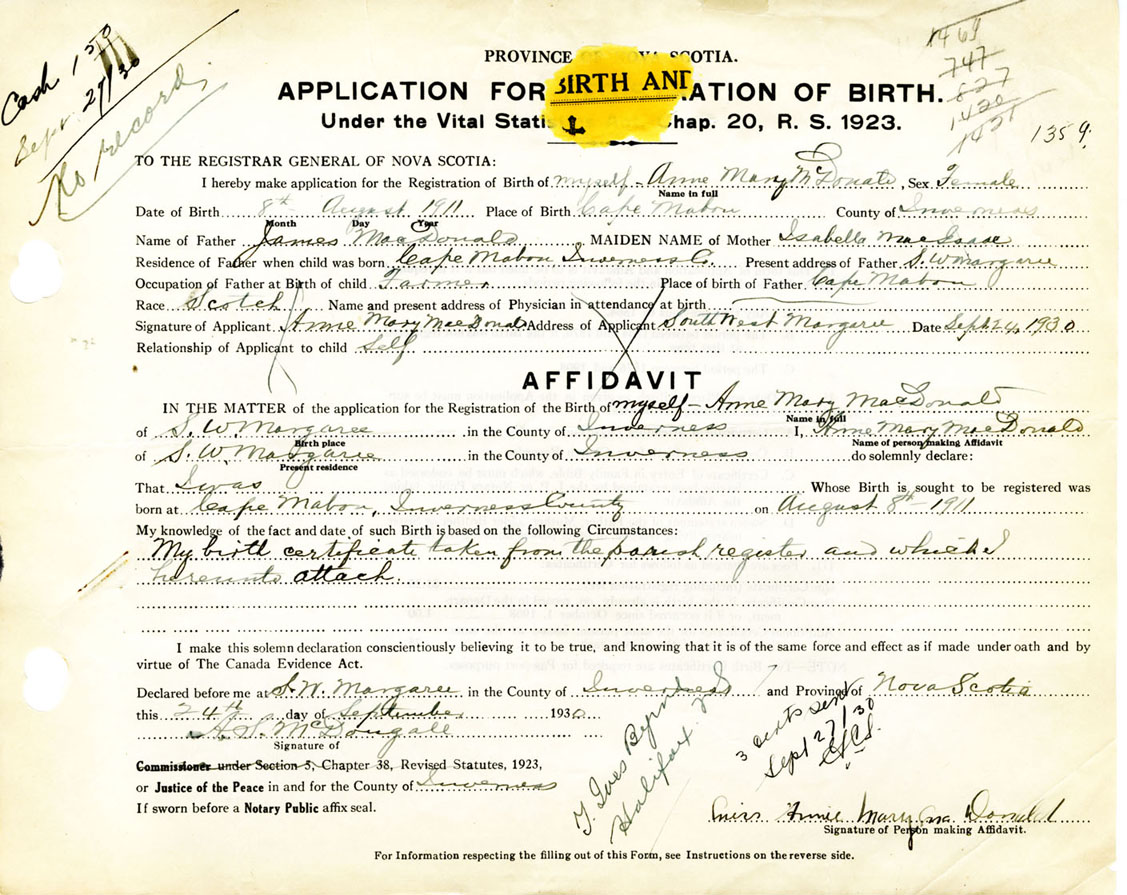 Cash 1 50
Sept. 27/30
No record
1469
747
827
1420
1421
1359.
PROVINCE OF NOVA SCOTIA.
BIRTH AND
APPLICATION FOR RATION OF BIRTH.
Under the Vital Statis Chap. 20, R. S. 1923.
TO THE REGISTRAR GENERAL OF NOVA SCOTIA:
I hereby make application for the Registration of Birth of myself - Anne Mary McDonald, Sex Female
Name in full
Date of Birth 8th August 1911 Place of Birth Cape Mabou County of Inverness
Month Day Year
Name of Father James MacDonald, MAIDEN NAME of Mother Isabella MacIsaac
Residence of Father when child was born Cape Mabou Inverness Co. Present address of Father S. W Margaree
Occupation of Father at Birth of child Farmer Place of birth of Father Cape Mabou
Race Scotch Name and present address of Physician in attendance at birth
Signature of Applicant Annie Mary MacDonald Address of Applicant South West Margarie Date Sept 24, 1930
Relationship of Applicant to child Self
AFFIDAVIT
IN THE MATTER of the application for the Registration of the Birth of myself - Anne Mary MacDonald
Name in full
of S. W. Margaree in the County of Inverness I, Anne Mary MacDonald
Birth place Name of person making Affidavit
of S. W. Margarie in the County of Inverness do solemnly declare:
Present residence
That I was Whose Birth is sought to be registered was
born at Cape Mabou, Inverness County on August 8th - 1911
My knowledge of the fact and date of such Birth is based on the following Circumstances:
My birth certificate taken from the parish register and which I
hereunto attach.
I make this solemn declaration conscientiously believing it to be true, and knowing that it is of the same force and effect as if made under oath and by
virtue of The Canada Evidence Act.
Declared before me at S. W. Margaree in the County of Inverness and Province of Nova Scotia
this 24th day of September 1930
A. S. McDougall
Signature of
Commissioner under Section 5, Chapter 38, Revised Statutes, 1923,
or Justice of the Peace in and for the County of Inverness
If sworn before a Notary Public affix seal.
T. Ives Byrn
Halifax
3 cents sent
Sept 27/30
Miss Annie Mary Mac Donald
Signature of Person making Affidavit.
For Information respecting the filling out of this Form, see Instructions on the reverse side.